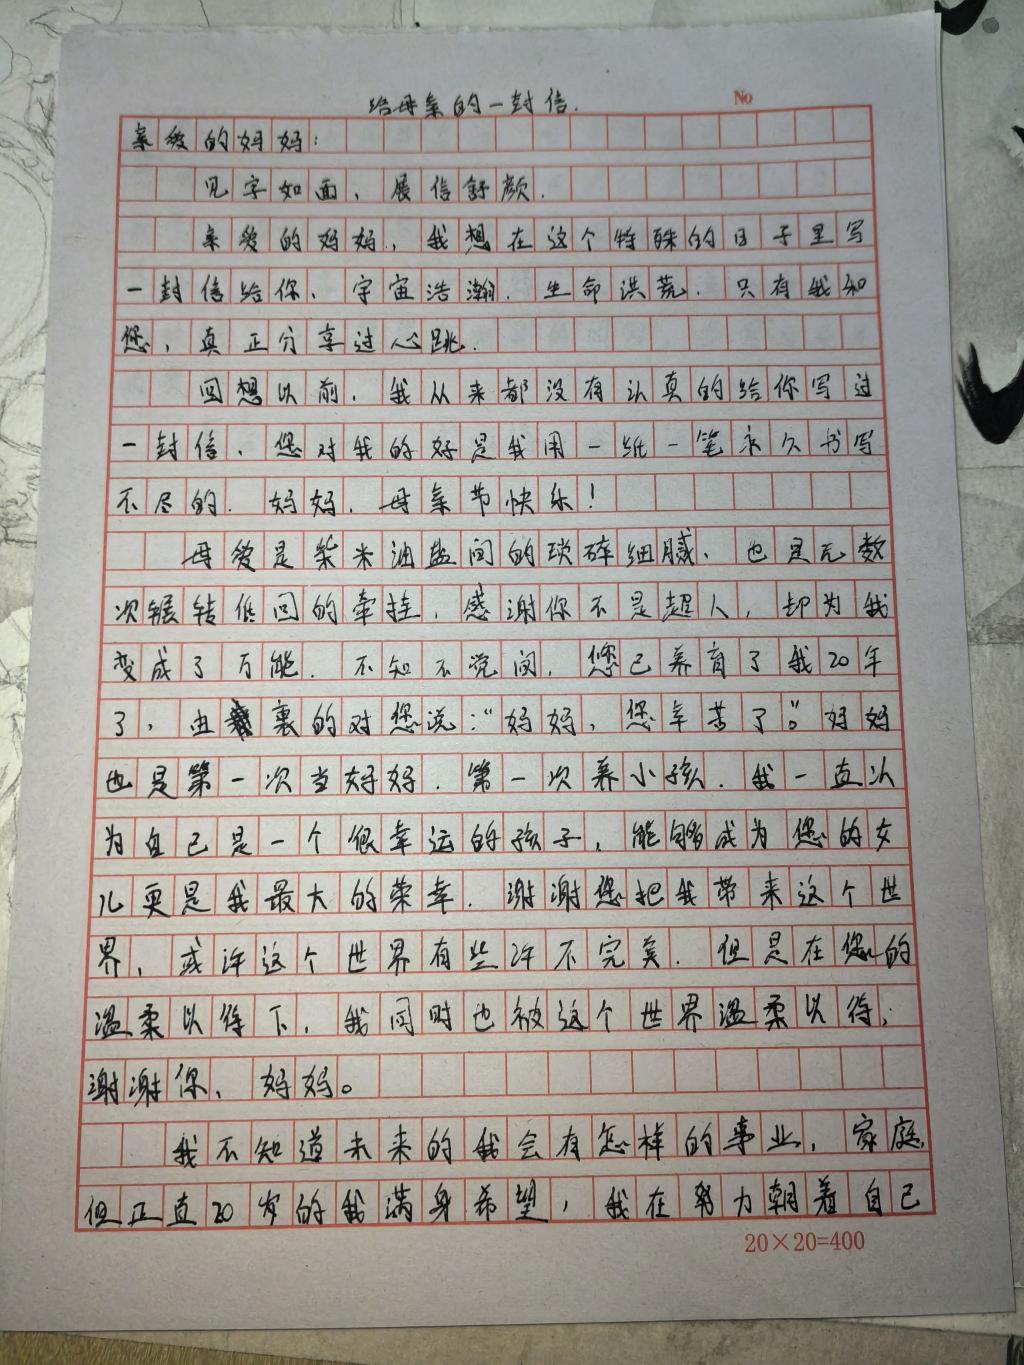 给母亲的一封信.
No
亲爱的妈妈:
见字如面、展信舒颜.
亲爱的妈妈,我想在这个特殊的日子里写
一封信给你、宇宙浩瀚.生命洪荒.只有我和
您,真正分享过心跳.
回想以前.我从来都没有认真的给你写过
一封信、您对我的好是我用一纸一笔永久书写
不尽的.妈妈.母亲节快乐!
母爱是柴米油盐间的琐碎细腻、也是无数
次辗转低回的牵挂.感谢你不是超人,却为我
变成了万能.不知不觉间.您已养育了我20年
了,由衷的对您说:“妈妈,您辛苦了”。妈妈
也是第一次当妈妈.第一次养小孩.我一直认
为自己是一个很幸运的孩子,能够成为您的女
儿更是我最大的荣幸.谢谢您把我带来这个世
界、或许这个世界有些许不完美.但是在您的
温柔以待下,我同时也被这个世界温柔以待;
谢谢你、妈妈。
我不知道未来的我会有怎样的事业,家庭,
但正直20岁的我满身希望,我在努力朝着自己
20×20=400